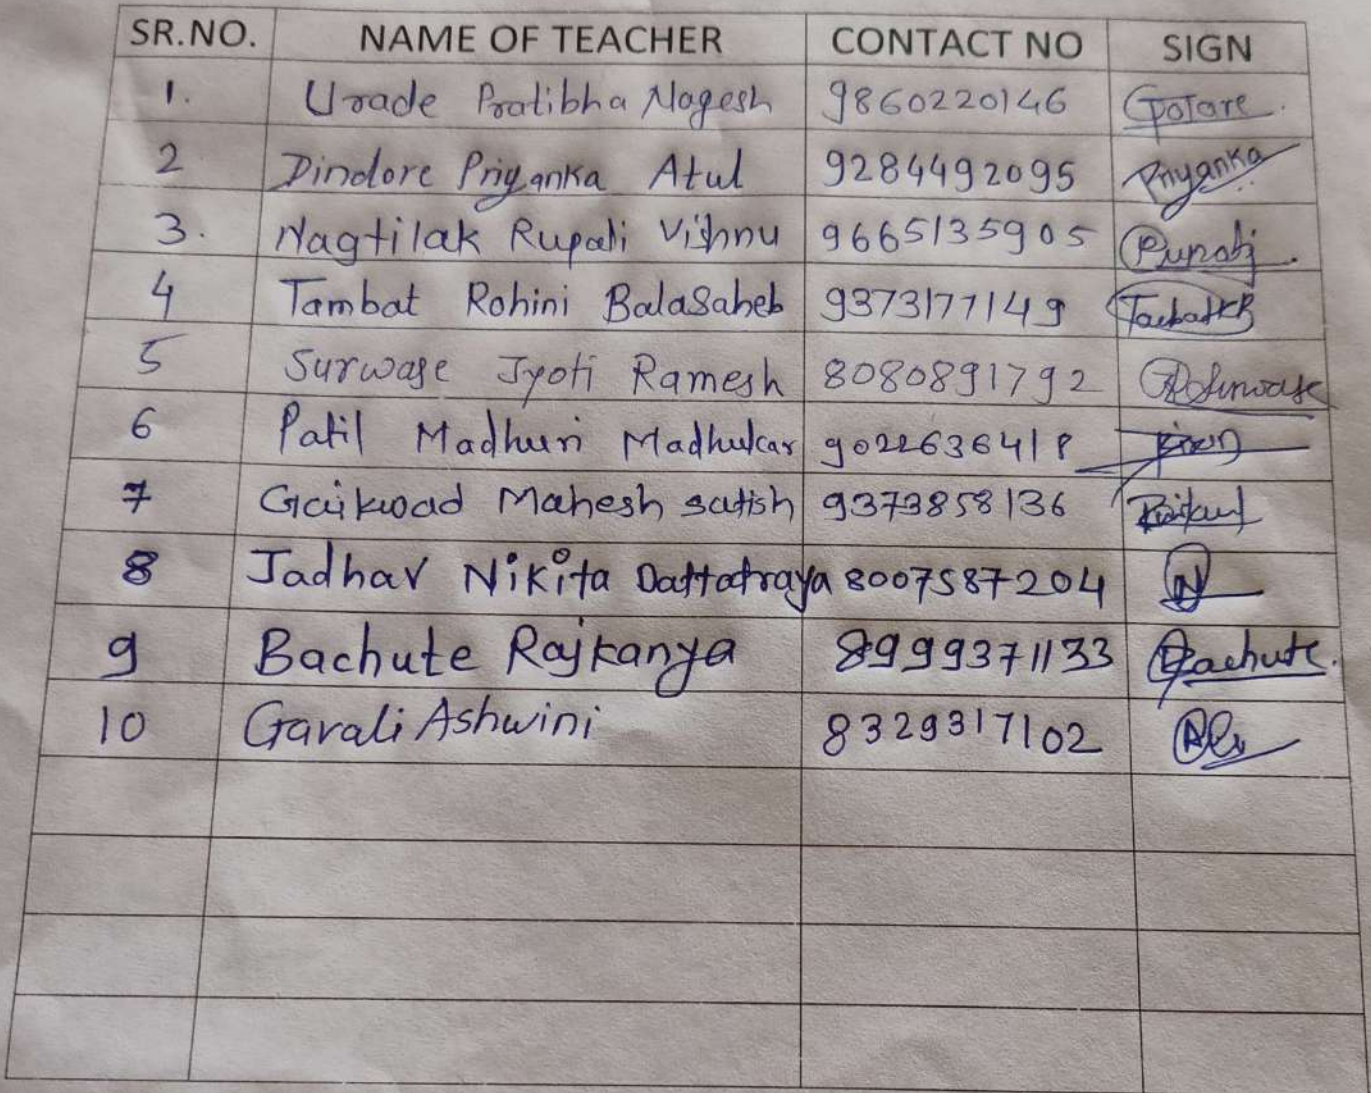 SR.NO. NAME OF TEACHER CONTACT NO SIGN
1. Urade Pratibha Nagesh 9860220146
2 Dindore Priyanka Atul 9284492095 Priyanka
3. Nagtilak Rupali Vishnu 9665135905
4 Tambat Rohini Balasaheb 9373177149
5 Surwase Jyoti Ramesh 8080891792
6 Patil Madhuri Madhukar 9022636418
7 Gaikwad Mahesh satish 9373858136
8 Jadhav Nikita Dattatraya 8007587204
9 Bachute Rajkanya 8999371133 Bachute.
10 Gavali Ashwini 8329317102